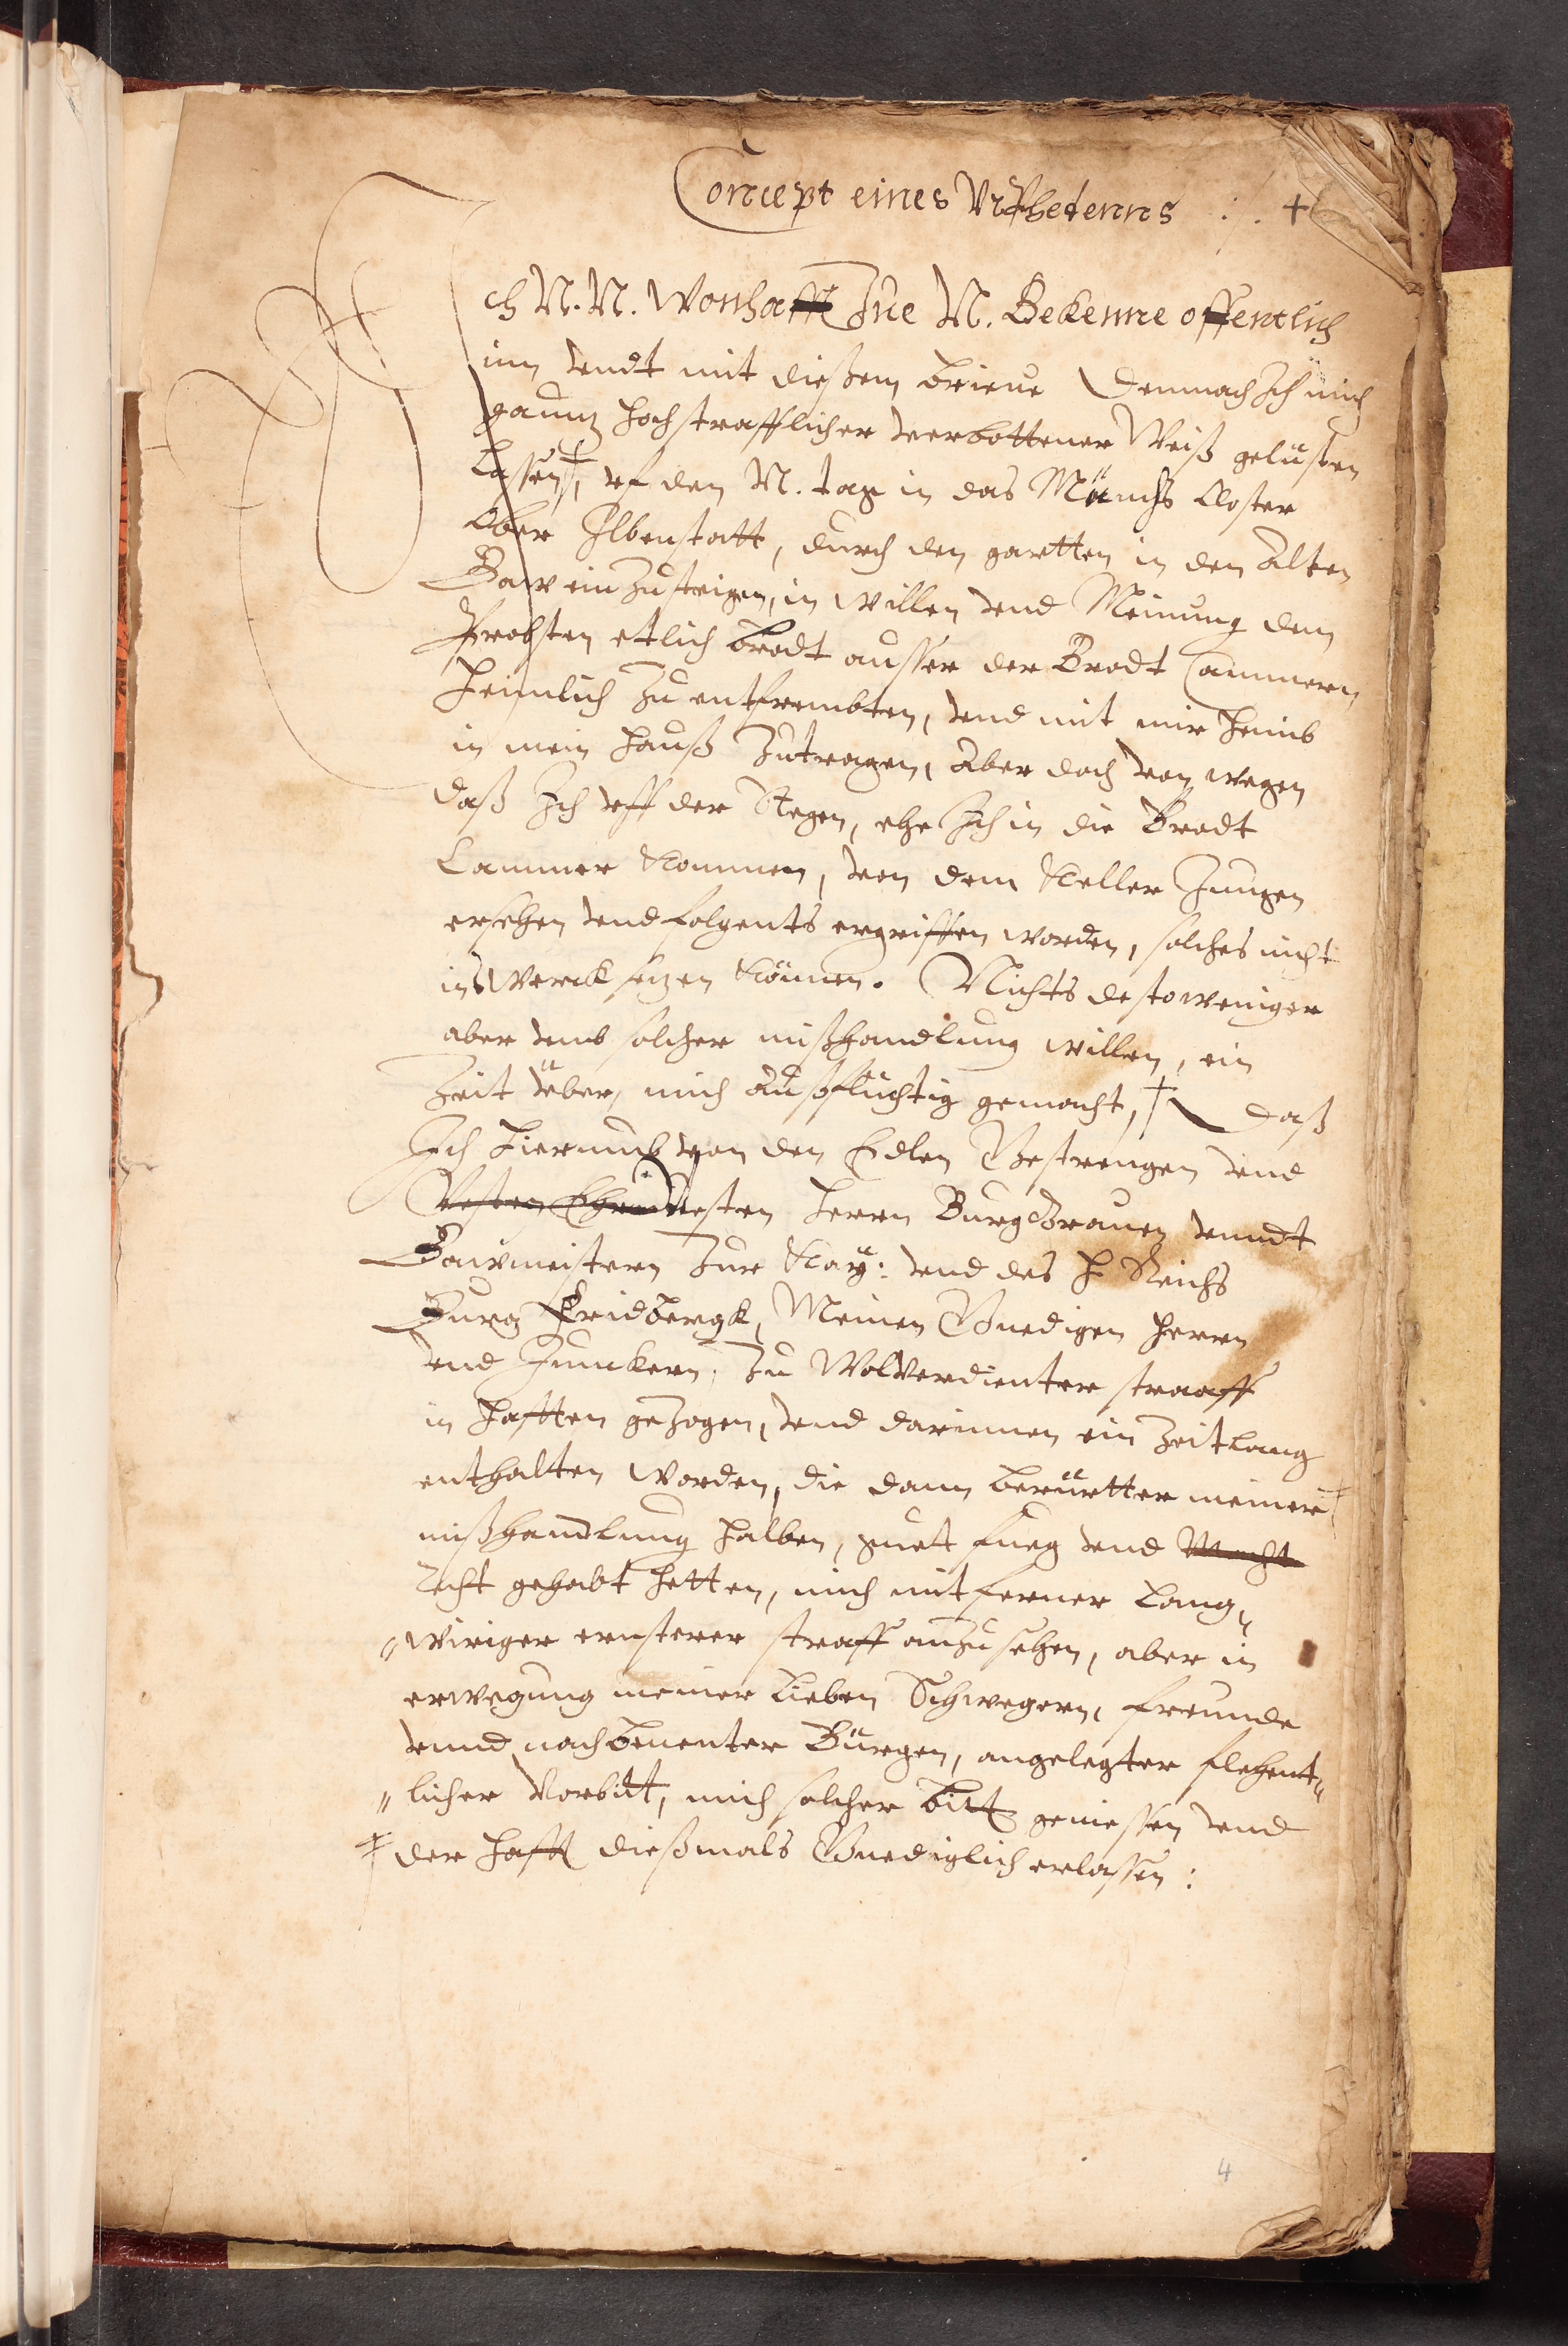 Concept eines Vrphedenns ./. +
Ich N. N. Wonhafft Zue N. Bekenne offentlich
inn vndt mit dießem brieue Demnach Ich mich
gauntz hochstrafflicher verbottener Weiß gelüsten
Lassen, vf den N. tag in das Münchs Closter
Ober Ilbenstatt, durch den gartten in den Alten
Baw ein zusteigen, in willen vnd Meinung dem
Probsten etlich brodt ausser der Brodt Cammern
heimlich zu entfrembten, vnd mit mir heimb
in mein hauß zutragen, Aber doch von wegen
daß Ich vff der Stegen, ehe Ich in die Brodt
Cammer Kommen, von dem Keller Jungen
ersehen vnd folgents ergriffen worden, solches nicht
ins Werck setzen Können. Nichts destoweniger
aber vmb solcher mißhandlung willen, ein
Zeit vber, mich außflüchtig gemacht, + daß
Ich hierumb von den Edlen Gestrengen vnd
Vesten Ehrnuesten herrn BurgGrauen vnndt
Bawmeistern Zur Kay: vnd des H Reichs
Burg Fridbergk, Meinen Gnedigen herrn
vnd Junckern, Zu Wolverdienter straaff
in hafften gezogen, vnd darinnen ein Zeitlang
enthalten worden, die dann berürtter meiner
mißhandlung halben, guet fueg vnd Macht
Recht gehabt hetten, mich mit ferner lang„
„wiriger ernsterer straff anzusehen, aber in
erwegung meiner lieben Schwegern, freunde
vnnd nachbenenter Bürgen, angelegter flehent„
„licher Vorbitt, mich solcher bitt geniessen vnd
+ der hafft dießmals Gnediglich erlassen:
4